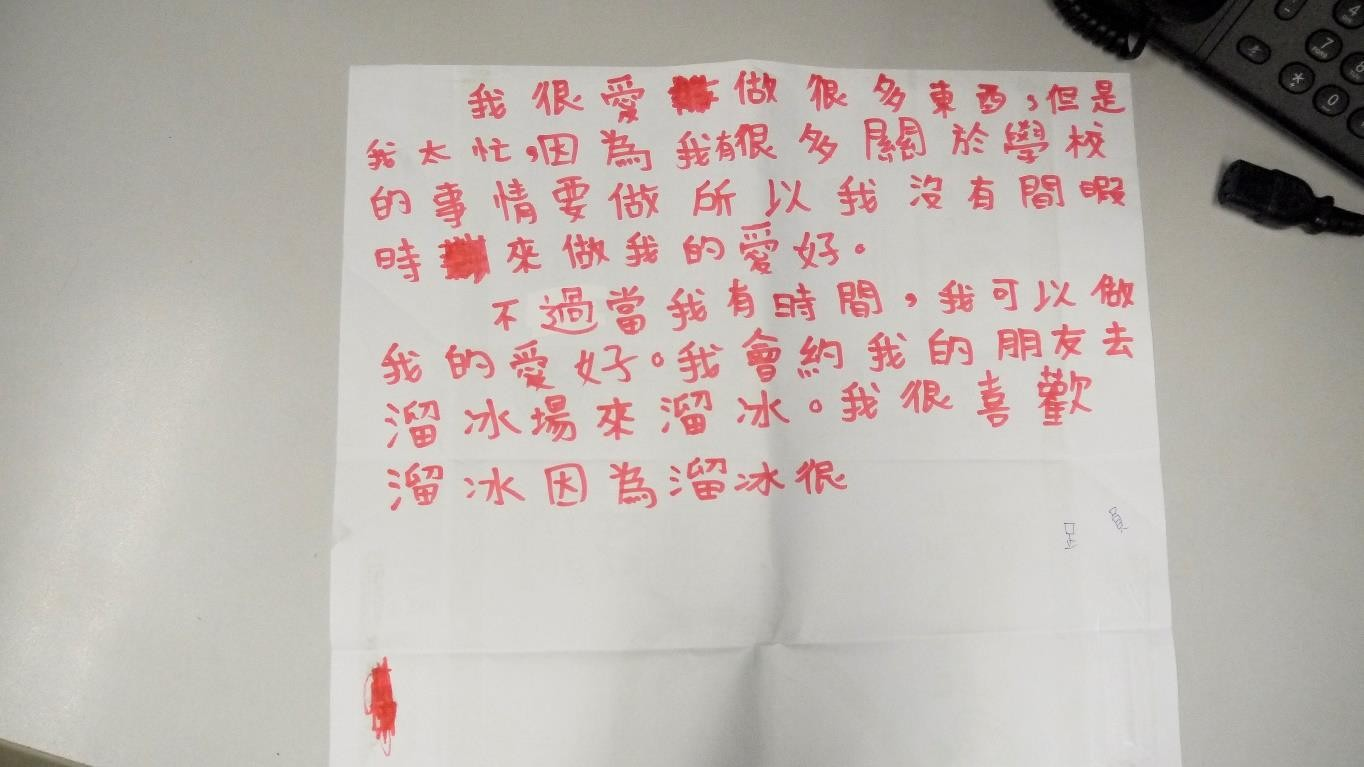 我很愛做很多東西，但是
我太忙，因為我有很多關於學校
的事情要做所以我沒有間暇
時來做我的愛好。
不過當我有時間，我可以做
我的愛好。我會約我的朋友去
溜冰場來溜冰。我很喜歡
溜冰因為溜冰很
7
0
*